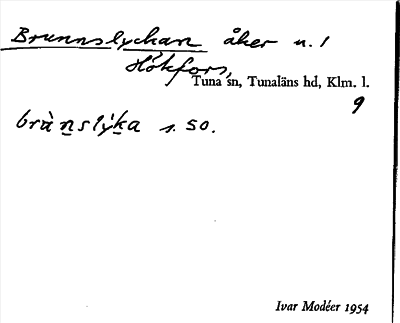 Brunnslyckan åker n. 1
Hökfors,
Tuna sn, Tunaläns hd, Klm. l.
9
brùn̲slýk̲a s. so.
Ivar Modéer 1954